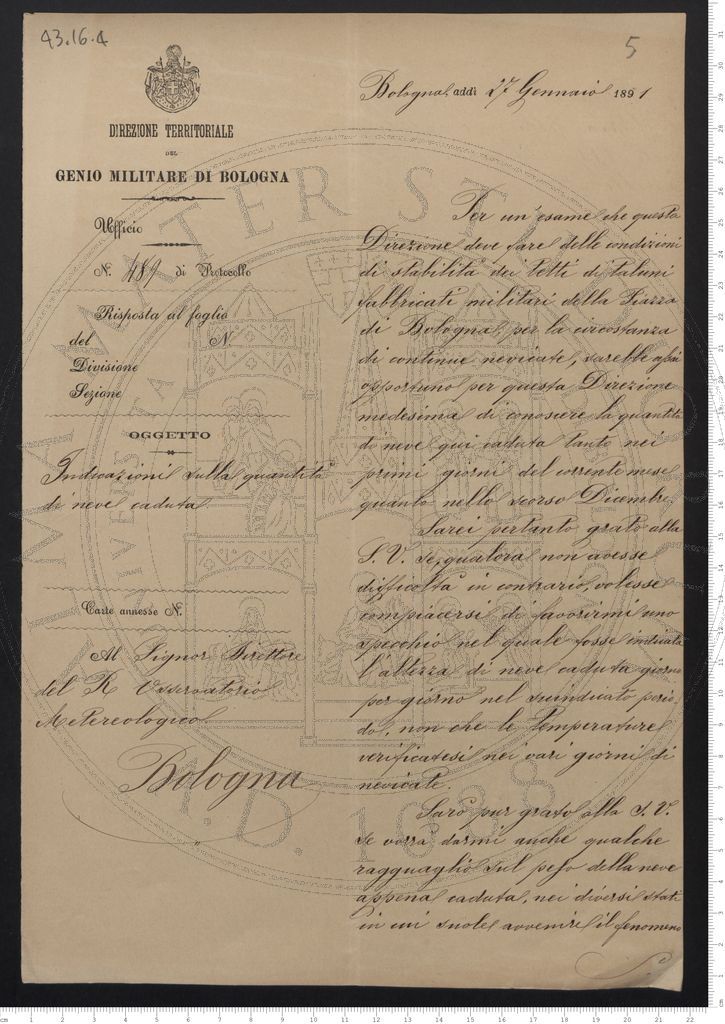 43.16.4
5
Bologna, addì 27 Gennaio 1891
DIREZIONE TERRITORIALE
DEL
GENIO MILITARE DI BOLOGNA
Ufficio
N. 489 di Protocollo
Risposta al foglio
del N.
Divisione
Sezione
OGGETTO
Indicazioni sulla quantità
di neve caduta.
Carte annesse N.
Al Signor Direttore
del R Osservatorio
Metereologico
Bologna
Per un' esame che questa
Direzione deve fare delle condizioni
di stabilità dei tetti di taluni
fabbricati militari della Piazza
di Bologna, per la circostanza
di continue nevicate, sarebbe assai
opportuno per questa Direzione
medesima di conoscere la quantità
di neve qui caduta tanto nei
primi giorni del corrente mese
quanto nello scorso Dicembre.
Sarei pertanto grato alla
S. V. se, qualora non avesse
difficoltà in contrario, volesse
compiacersi di favorirmi uno
specchio nel quale fosse indicata
l'altezza di neve caduta giorno
per giorno nel suindicato perio-
do, non che le temperature
verificatesi nei vari giorni di
nevicate.
Sarò pur grato alla S. V.
se vorrà darmi anche qualche
ragguaglio sul peso della neve
appena caduta, nei diversi stati
in cui suole avvenire il fenomeno
ALMA MATER STUDIORUM
A.D. 1088